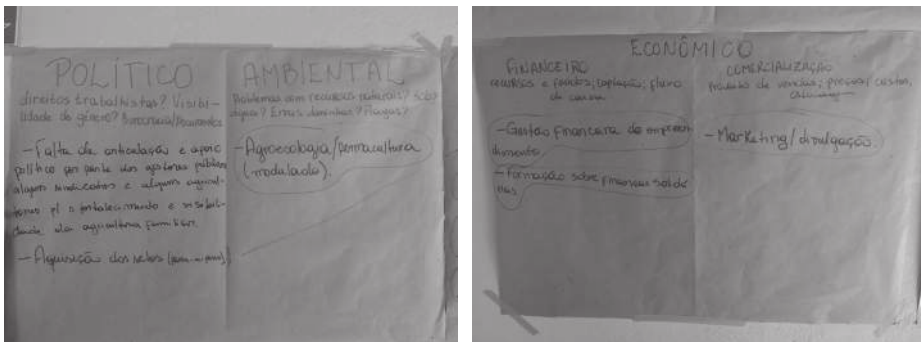 POLÍTICO
direitos trabalhistas? Visibi-
lidade de gênero? Burocracia/Documentos
- Falta de articulação e apoio
político por parte dos gestores públicos
alguns sindicatos e alguns agricul-
tores p/ o fortalecimento e
da agricultura familiar.
- Aquisição dos selos
AMBIENTAL
Problemas com recursos naturais? Solo?
Água? Ervas daninhas? Pragas?
- Agroecologia/permacultura
(modulado).
ECONÔMICO
FINANCEIRO
recursos e fundos; captação; fluxo
de caixa
- Gestão financeira do empreen
dimento
- Formação sobre finanças solidá
rias
COMERCIALIZAÇÃO
produto de vendas; preços; custos,
- Marketing/divulgação.